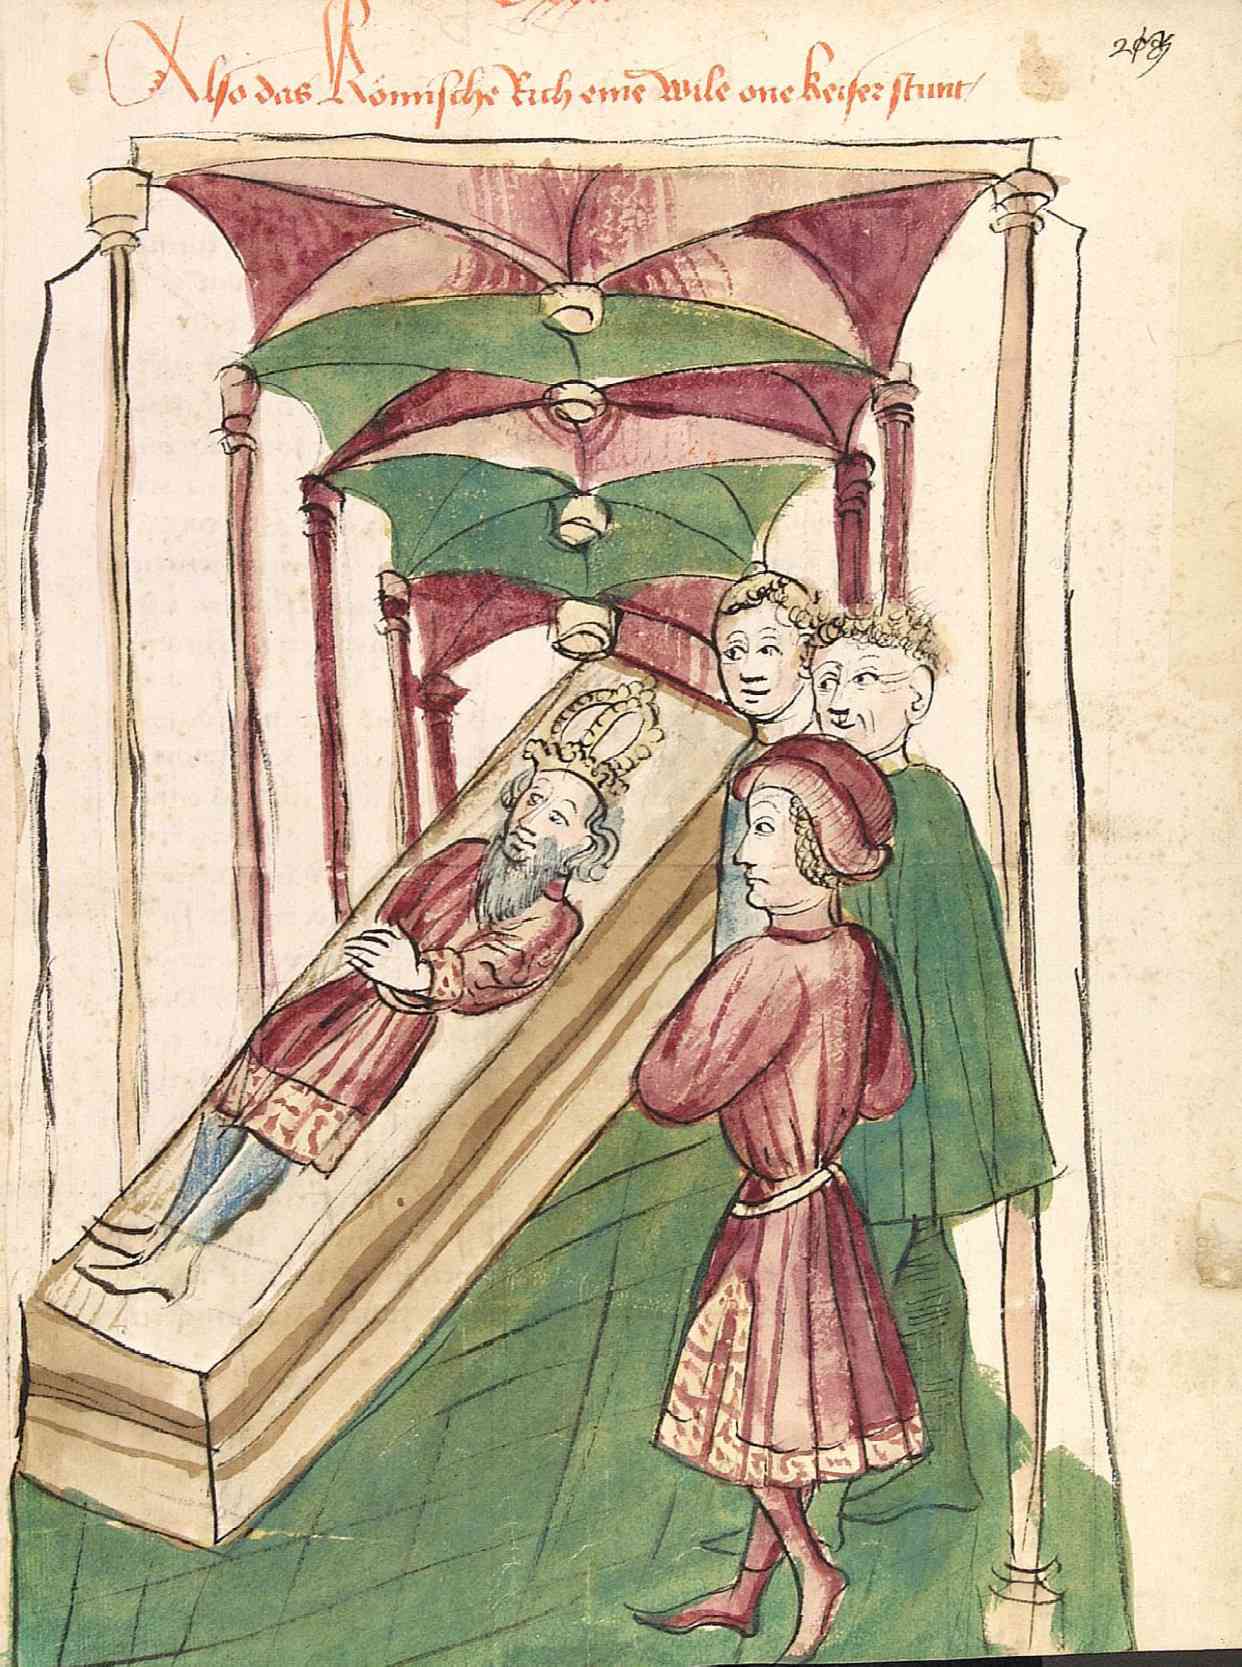 Also das Römische Rich eine wile one keiser stunt